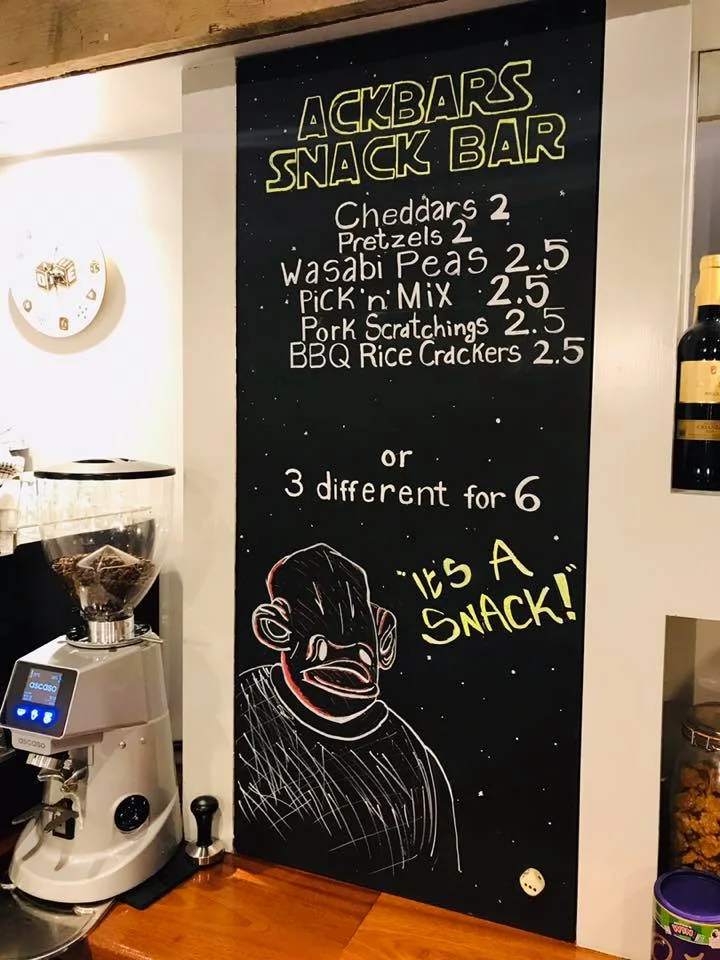 ACKBARS
SNACK BAR
Cheddars 2
Pretzels 2
Wasabi Peas 2.5
PiCK 'n' Mix 2.5
Pork Scratchings 2.5
BBQ Rice Crackers 2.5
or
3 different for 6
"It's A
SNACK!"
ascaso
ascaso
WIN